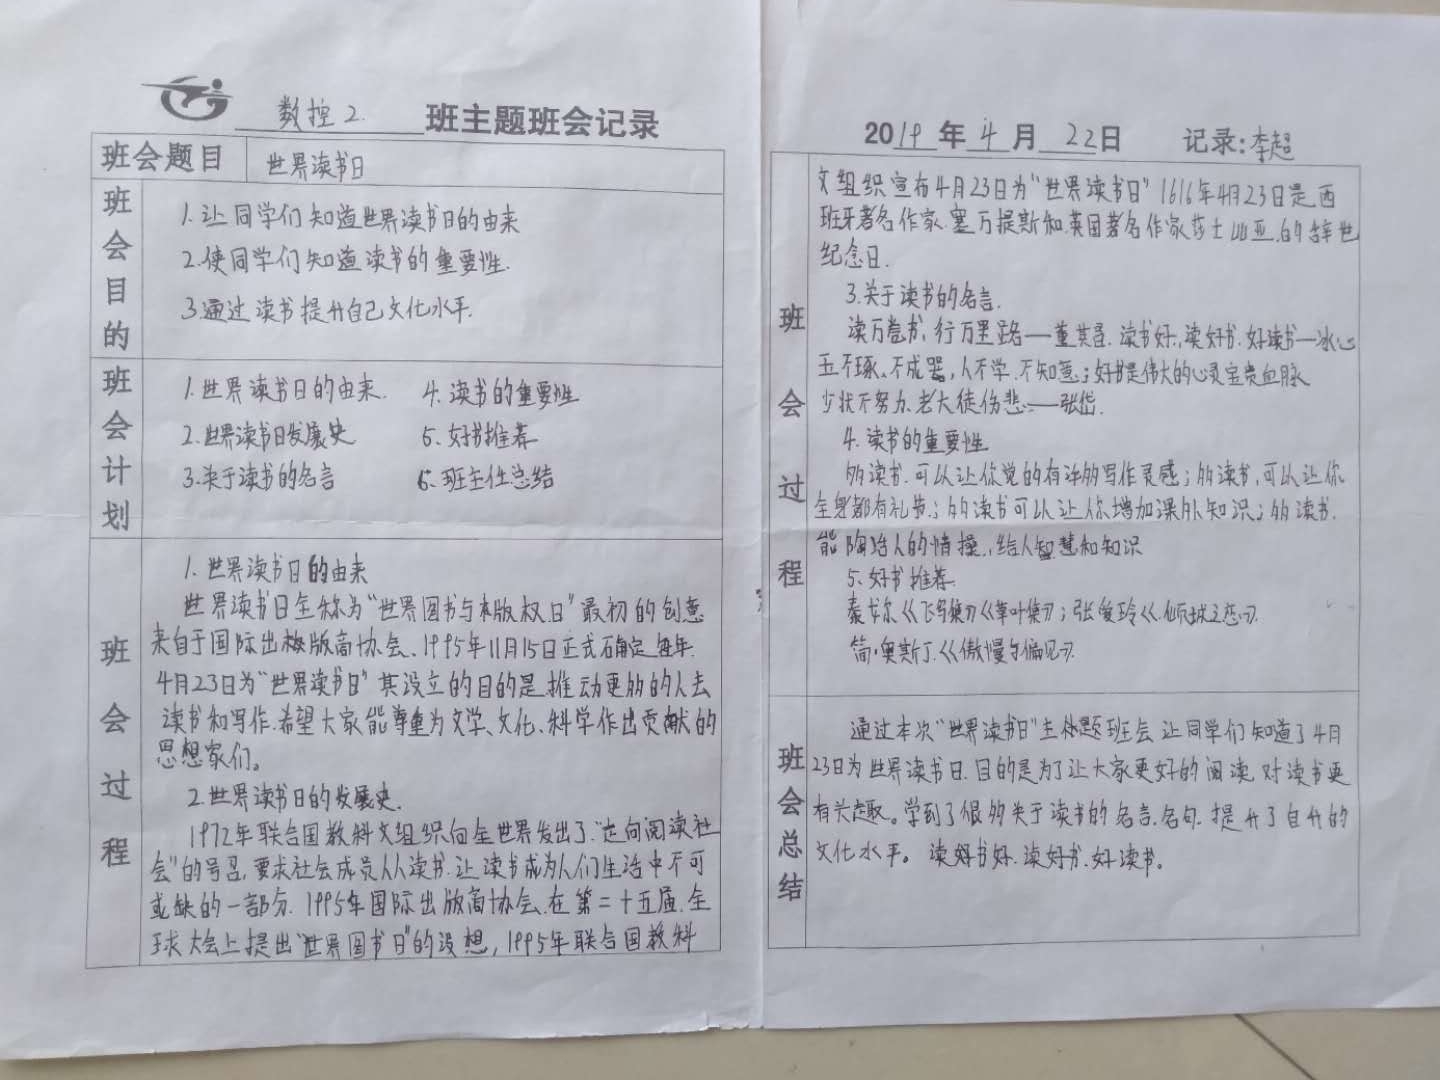 数控2. 班主题班会记录
班会题目 世界读书日
班会目的
1.让同学们知道世界读书日的由来
2.使同学们知道读书的重要性.
3.通过读书提升自己文化水平.
班会计划
1.世界读书日的由来. 4.读书的重要性
2.世界读书日发展史 5.好书推荐
3.关于读书的名言 6.班主任总结
班会过程
1.世界读书日的由来
世界读书日全称为“世界图书与本版权日”最初的创意
来自于国际出版商协会、1995年11月15日正式确定每年
4月23日为“世界读书日”其设立的目的是推动更多的人去
读书和写作.希望大家能尊重为文学、文化、科学作出贡献的
思想家们。
2.世界读书日的发展史.
1972年联合国教科文组织向全世界发出了“走向阅读社
会”的号召,要求社会成员人人读书.让读书成为人们生活中不可
或缺的一部分.1995年国际出版商协会.在第二十五届.全
球大会上提出“世界图书日”的设想,1995年联合国教科
2019年4月22日 记录:李超
班会过程
文组织宣布4月23日为“世界读书日”1616年4月23日是西
班牙著名作家.塞万提斯和英国著名作家莎士比亚.的辞世
纪念日.
3.关于读书的名言.
读万卷书,行万里路——董其昌.读书好,读好书.好读书—冰心
玉不琢、不成器,人不学.不知义;好书是伟大的心灵宝贵血脉
少状不努力.老大徒伤悲——张岱.
4.读书的重要性
多读书.可以让你觉的有许多写作灵感;多读书,可以让你
全身都有礼节;多读书可以让你增加课外知识;多读书.
能陶冶人的情操,给人智慧和知识
5.好书推荐.
泰戈尔《飞鸟集》《草叶集》;张爱玲《倾城之恋》.
简·奥斯丁.《傲慢与偏见》.
班会总结
通过本次“世界读书日”主题班会让同学们知道了4月
23日为世界读书日.目的是为了让大家更好的阅读.对读书更
有兴趣。学到了很多关于读书的名言.名句.提升了自身的
文化水平。读好书好.读好书.好读书。